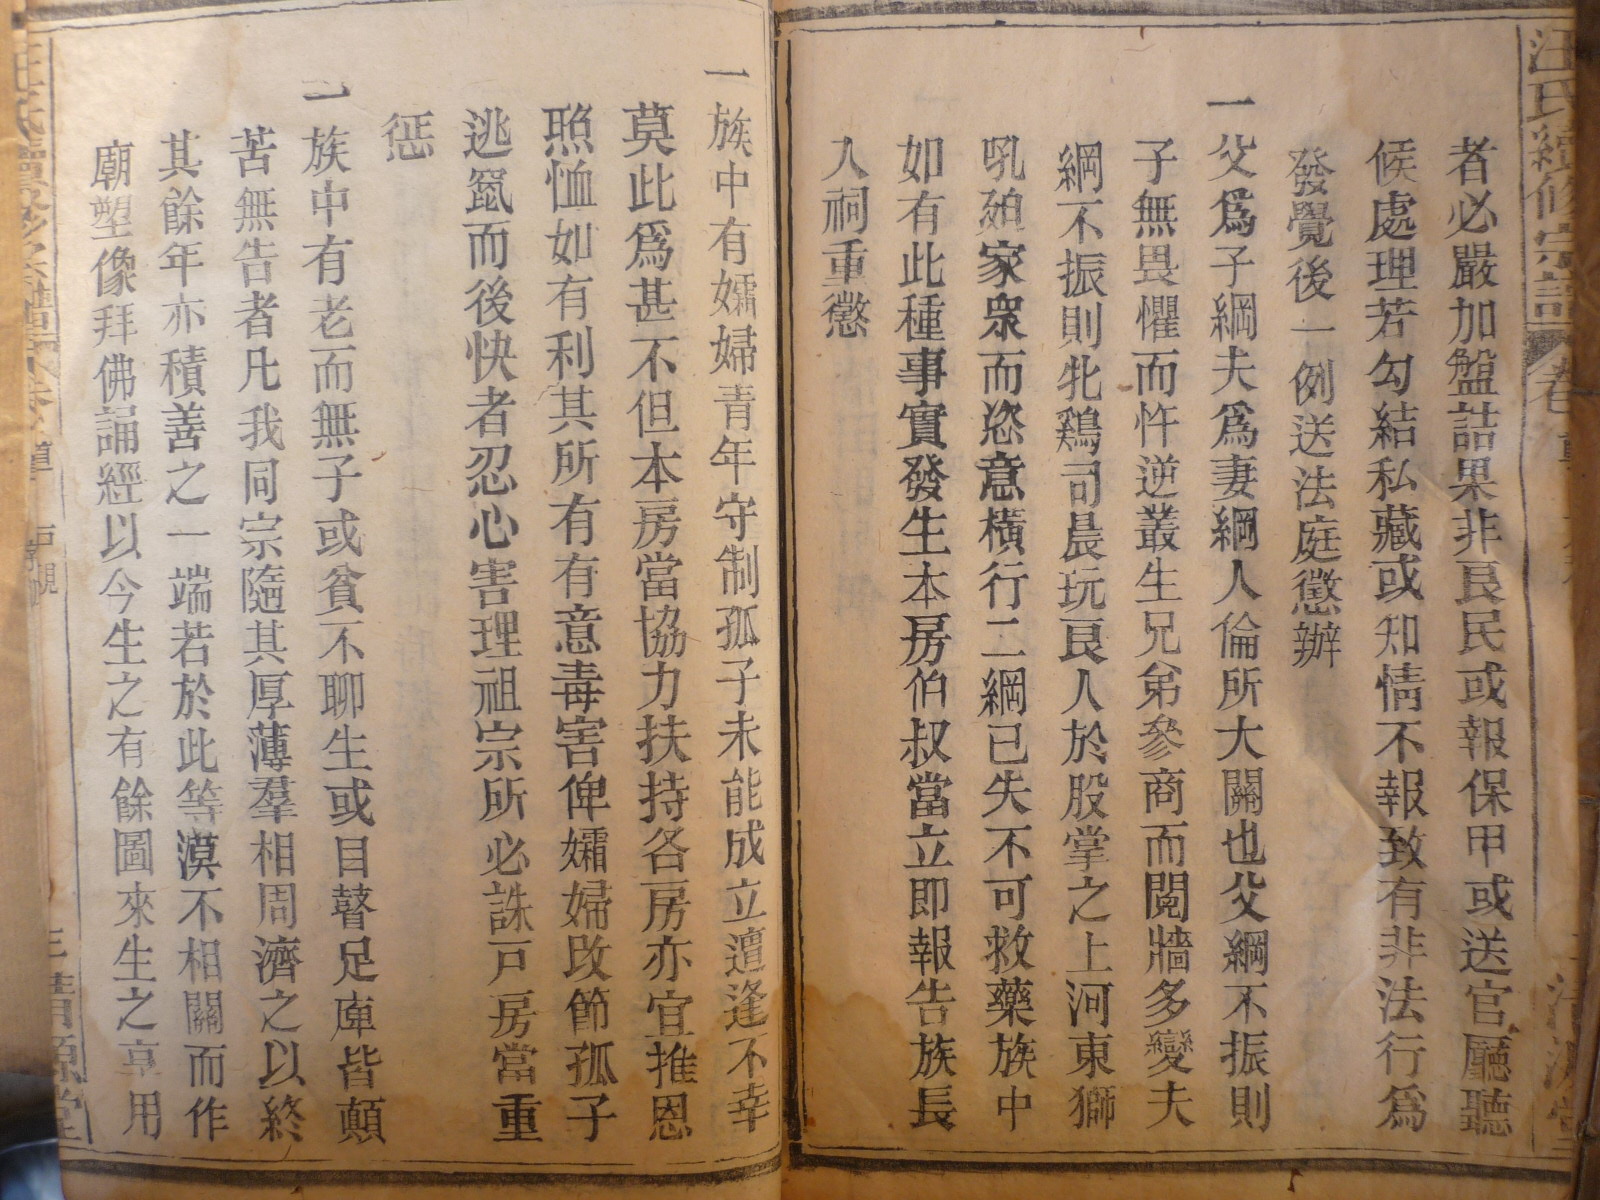 汪氏續修宗譜 卷
者必嚴加盤詰果非良民或報保甲或送官廳聽
候處理若勾結私藏或知情不報致有非法行爲
發覺後一例送法庭懲辦
一父爲子綱夫爲妻綱人倫所大關也父綱不振則
子無畏懼而忤逆叢生兄弟參商而鬩牆多變夫
綱不振則牝鷄司晨玩良人於股掌之上河東獅
吼殃家衆而恣意橫行二綱已失不可救藥族中
如有此種事實發生本房伯叔當立即報告族長
入祠重懲
一族中有孀婦青年守制孤子未能成立遭逢不幸
莫此爲甚不但本房當協力扶持各房亦宜推恩
照恤如有利其所有有意毒害俾孀婦改節孤子
逃竄而後快者忍心害理祖宗所必誅戸房當重
懲
一族中有老而無子或貧不聊生或目瞽足痺皆顛
苦無告者凡我同宗隨其厚薄羣相周濟之以終
其餘年亦積善之一端若於此等漠不相關而作
廟塑像拜佛誦經以今生之有餘圖來生之享用
汪氏續修宗譜 卷 三 清源堂